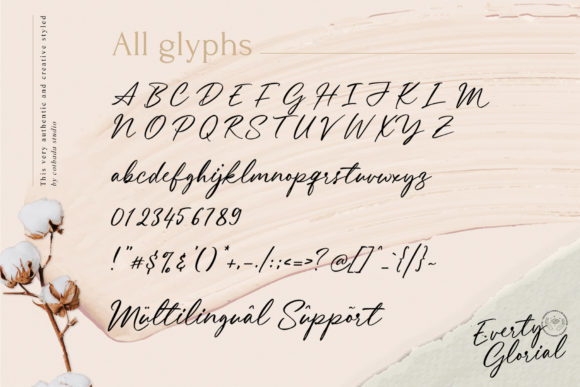 All glyphs
This very authentic and creative styled
by cotbada studio
A B C D E F G H I J K L M
N O P Q R S T U V W X Y Z
abcdefghijklmnopqrstuvwxyz
0123456789
!"#$%&'()*+,-./:;<=>?@[]^_`{|}~
Mültilinguâl Sûppõrt
Everty
Glorial